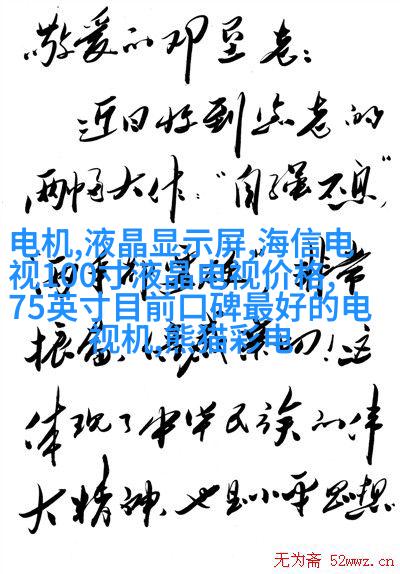 敬爱的邓垦老：
近日收到您老的
两幅大作：“自强不息”
电机,液晶显示屏,海信电
视100寸液晶电视价格,
75英寸目前口碑最好的电
视机,熊猫彩电
体现了中华民族的伟
大精神，也是小平思想
无为斋 52wwz.cn